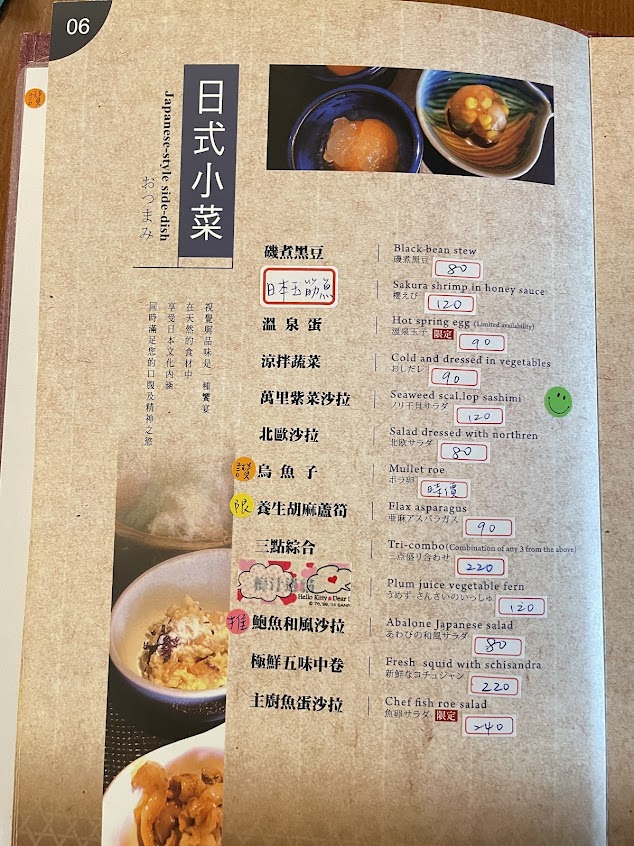 06
讚
日式小菜
Japanese-style side-dish
おつまみ
視覺與品味是一種饗宴
在天然的食材中
享受日本文化內涵
同時滿足您的口腹及精神之慾
磯煮黑豆
Black bean stew
磯煮黒豆
80
日本玉筋魚
Sakura shrimp in honey sauce
櫻えび
120
溫泉蛋
Hot spring egg (Limited availability)
溫泉玉子 限定
90
涼拌蔬菜
Cold and dressed in vegetables
おしだし
90
萬里紫菜沙拉
Seaweed scal.lop sashimi
ノリ干貝サラダ
120
北歐沙拉
Salad dressed with northren
北欧サラダ
80
讚
烏魚子
Mullet roe
ボラ卵
時價
限
養生胡麻蘆筍
Flax asparagus
亜麻アスパラガス
90
三點綜合
Tri-combo (Combination of any 3 from the above)
三点盛り合わせ
220
Hello Kitty & Dear!
Plum juice vegetable fern
うめず-さんさいのいっしゅ
120
推
鮑魚和風沙拉
Abalone Japanese salad
あわびの和風サラダ
80
極鮮五味中卷
Fresh squid with schisandra
新鮮なコチュジャン
220
主廚魚蛋沙拉
Chef fish roe salad
魚卵サラダ 限定
240